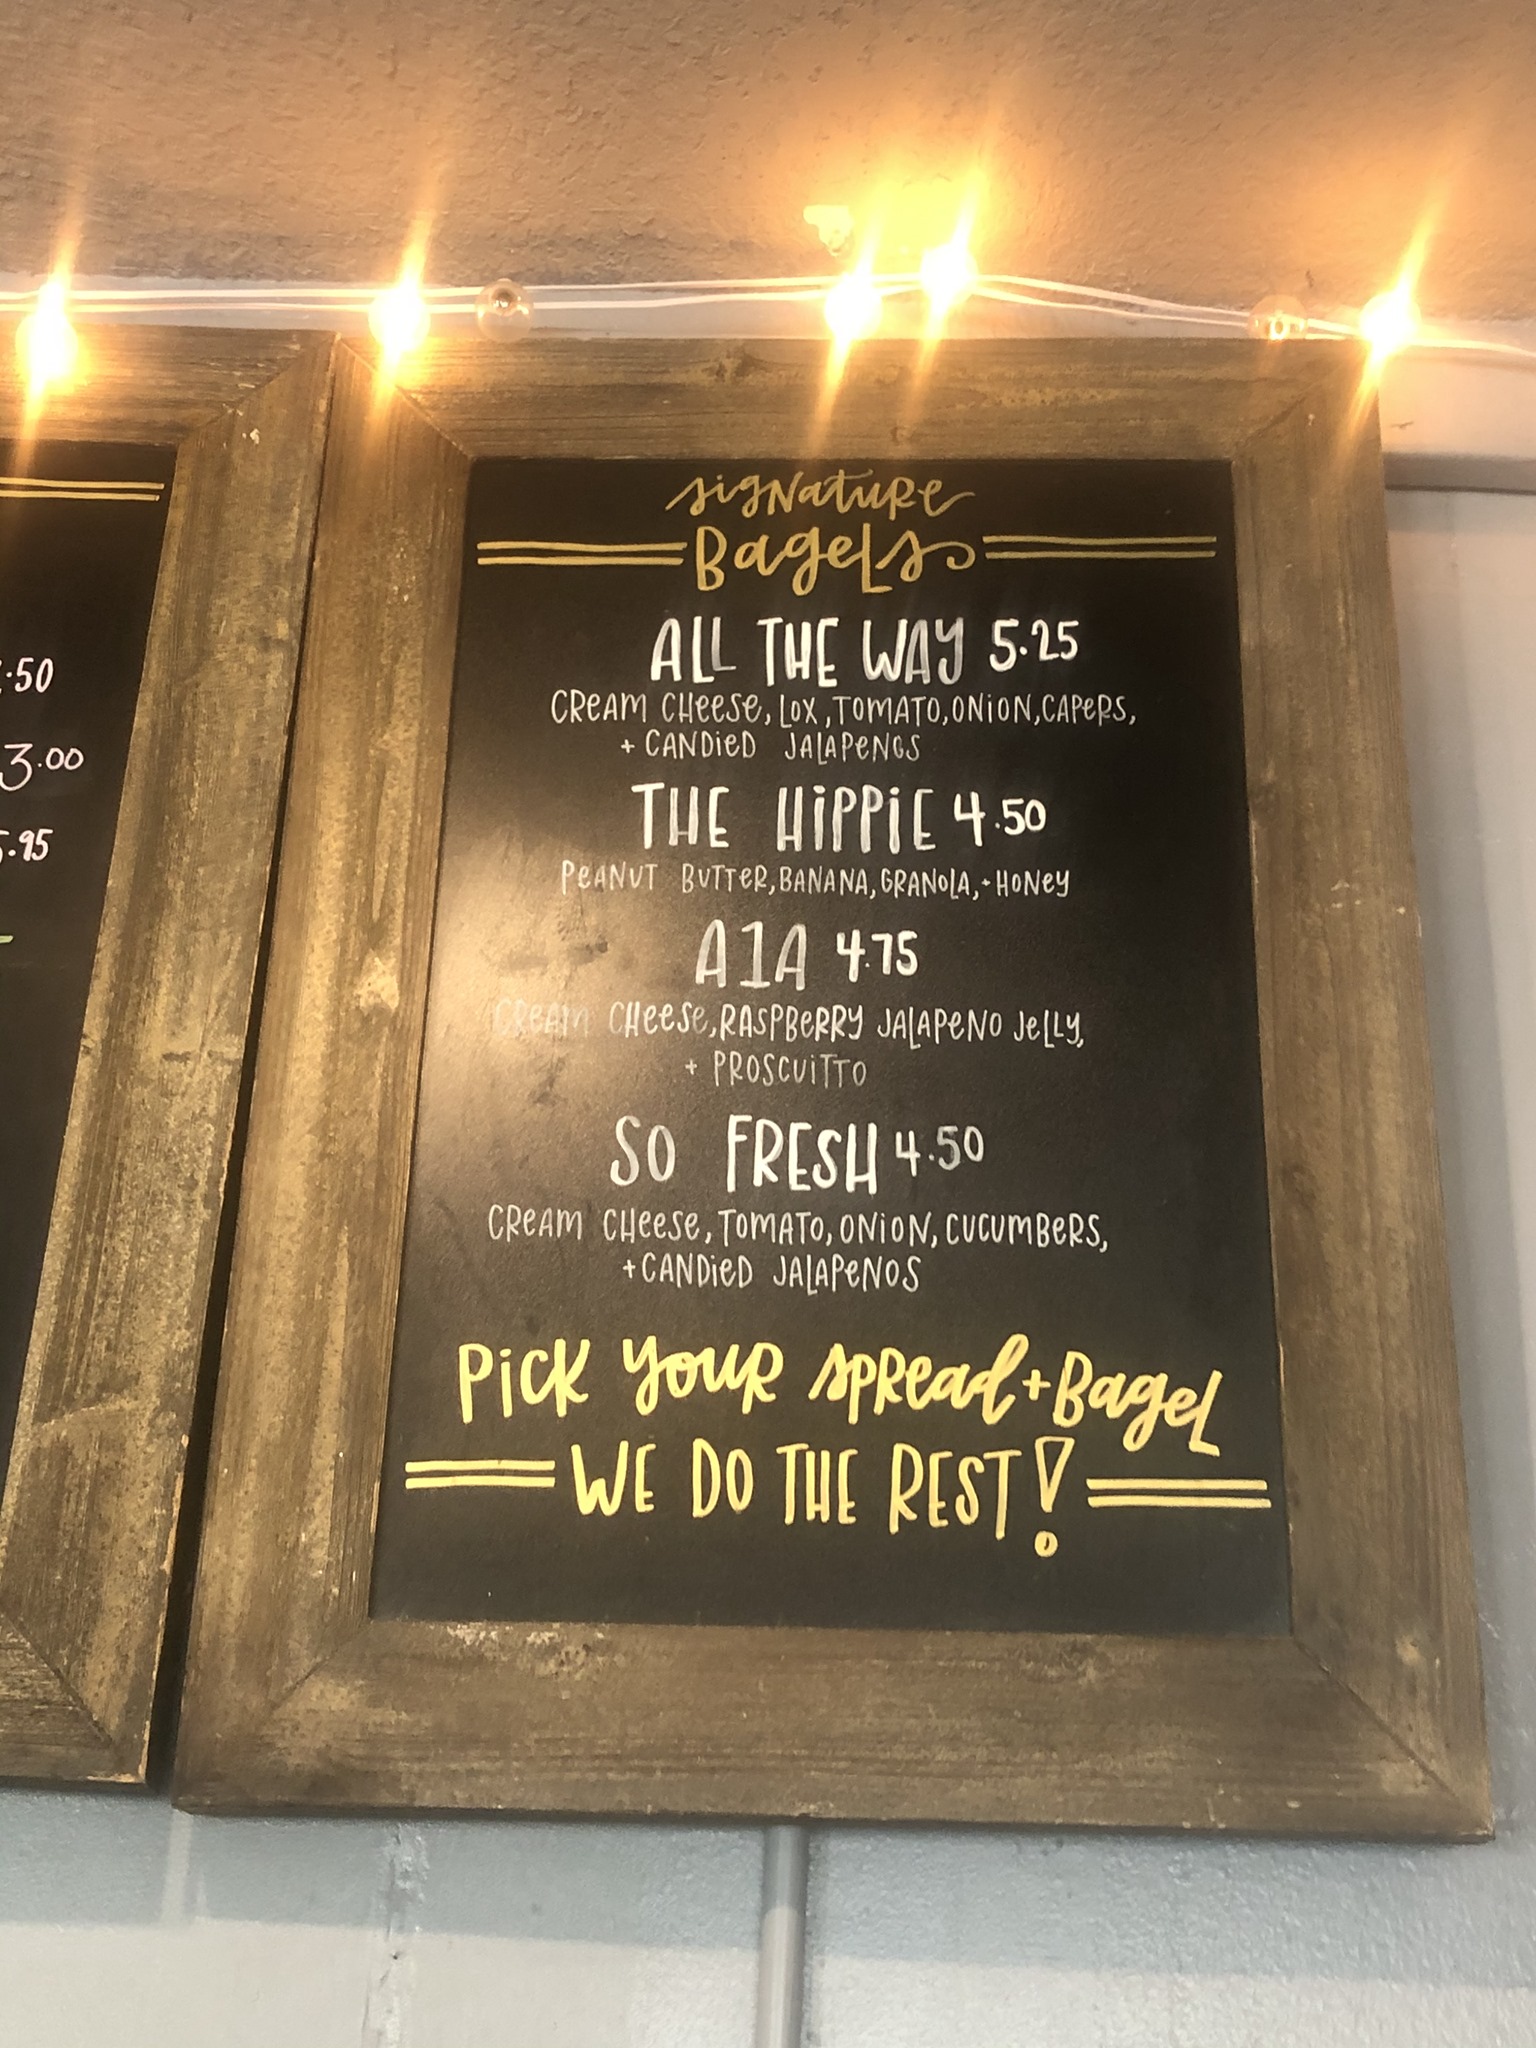 .50
3.00
.95
signature
Bagels
ALL THE WAY 5.25
CREAM CHEESE, LOX, TOMATO, ONION, CAPERS,
+ CANDIED JALAPENOS
THE HIPPIE 4.50
PEANUT BUTTER, BANANA, GRANOLA, + HONEY
A1A 4.75
CREAM CHEESE, RASPBERRY JALAPENO JELLY,
+ PROSCUITTO
SO FRESH 4.50
CREAM CHEESE, TOMATO, ONION, CUCUMBERS,
+ CANDIED JALAPENOS
Pick your spread + Bagel
WE DO THE REST!